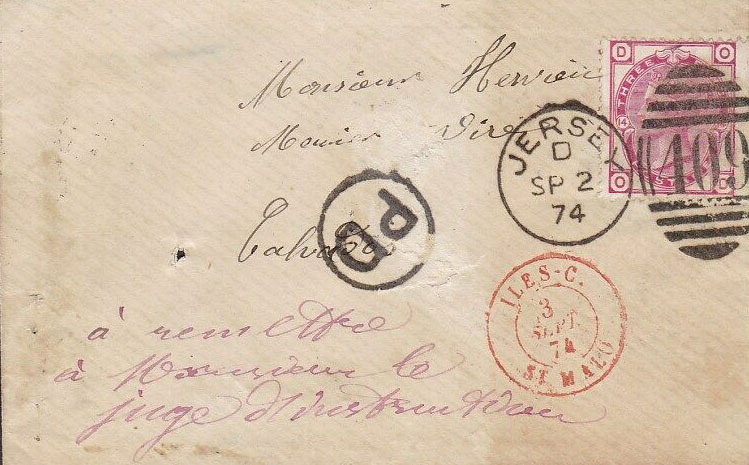 Monsieur Hervieu
Monier Vire
Calvados
PD
JERSEY
D
SP 2
74
D O
THREE
14
O D
409
ILES-C.
3
SEPT.
74
ST MALO
à remettre
à Monsieur le
juge d'instruction